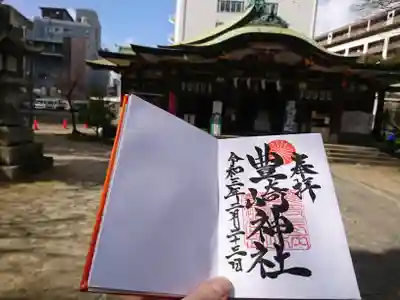 奉拝
豊崎神社
令和三年二月二十三日